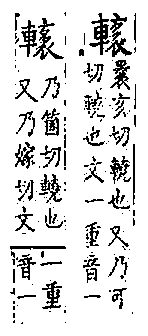 曩亥切也又乃可
切也文一重音一
乃箇切也
又乃嫁切文
一重
音一